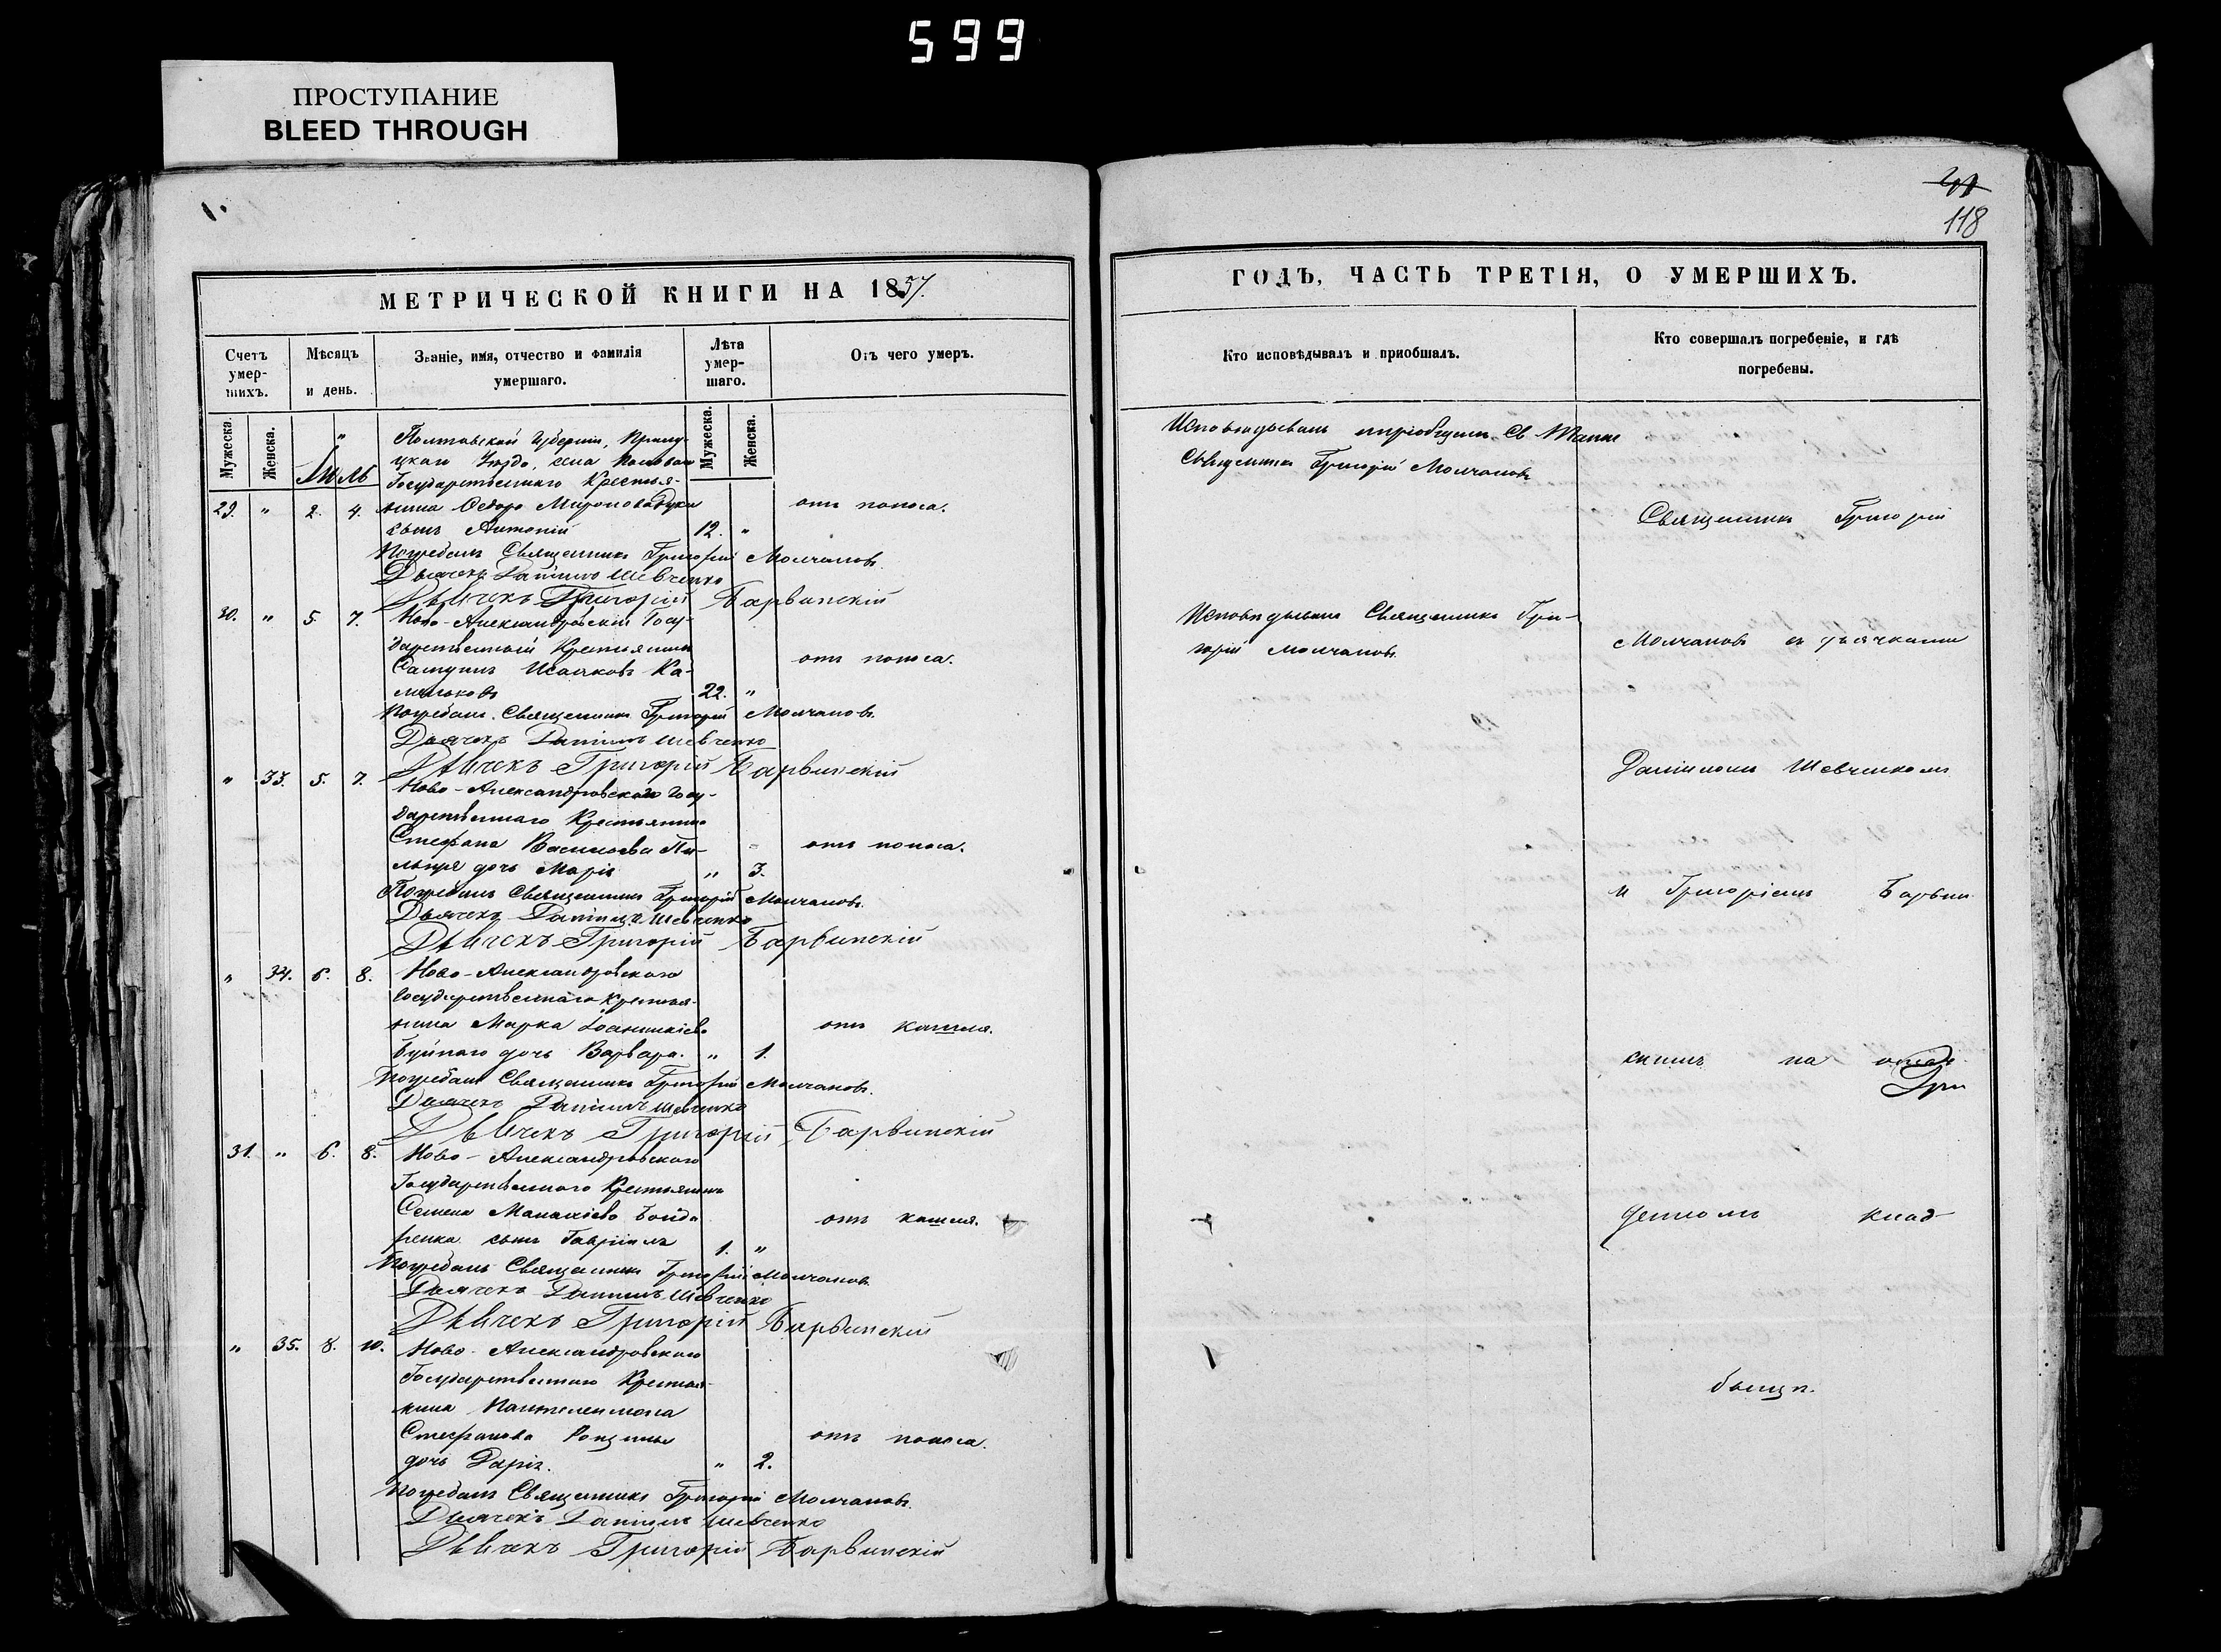 599
ПРОСТУПАНИЕ
BLEED THROUGH
118
МЕТРИЧЕСКОЙ КНИГИ НА 1857.
Счетъ умер-шихъ.
Мѣсяцъ и день.
Званіе, имя, отчество и фамилія умершаго.
Лѣта умер-шаго.
Отъ чего умеръ.
Мужеска.
Женска.
Мужеска.
Женска.
Полтавской Губерніи, Прилу-
цкаго Уѣзда, села
Государственнаго Крестья-
29. " 2. 4. нина Ѳедора Миронова сынъ Антоній 12. " отъ поноса.
Погребалъ Священникъ Григорій Молчановъ.
Дьячекъ Даніилъ Шевченко
Дьячекъ Григорій Барвинскій
30. " 5. 7. Ново-Александровскій Госу-
дарственный Крестьянинъ
Исааковъ Ка-
22. " отъ поноса.
Погребалъ Священникъ Григорій Молчановъ.
Дьячекъ Даніилъ Шевченко
Дьячекъ Григорій Барвинскій
" 33. 5. 7. Ново-Александровскаго Госу-
дарственнаго Крестьянина
Стефана Васильева
дочь Марія " 3. отъ поноса.
Погребалъ Священникъ Григорій Молчановъ.
Дьячекъ Даніилъ Шевченко
Дьячекъ Григорій Барвинскій
" 34. 6. 8. Ново-Александровскаго
Государственнаго Крестья-
нина Марка Іоанникіева
Буйнаго дочь Варвара. " 1. отъ кашля.
Погребалъ Священникъ Григорій Молчановъ.
Дьячекъ Даніилъ Шевченко
Дьячекъ Григорій Барвинскій
31. " 6. 8. Ново-Александровскаго
Государственнаго Крестьянина
Семена
сынъ Гавріилъ 1. " отъ кашля.
Погребалъ Священникъ Григорій Молчановъ
Дьячекъ Даніилъ Шевченко
Дьячекъ Григорій Барвинскій
" 35. 8. 10. Ново-Александровскаго
Государственнаго Крестья-
нина Пантелеимона
Стефанова
дочь Дарія. " 2. отъ поноса.
Погребалъ Священникъ Григорій Молчановъ.
Дьячекъ Даніилъ Шевченко
Дьячекъ Григорій Барвинскій
ГОДЪ, ЧАСТЬ ТРЕТІЯ, О УМЕРШИХЪ.
Кто исповѣдывалъ и пріобщалъ.
Кто совершалъ погребеніе, и гдѣ погребены.
Исповѣдывалъ и пріобщалъ Св. Таинъ
Священникъ Григорій Молчановъ
Священникъ Григорій
Исповѣдывалъ Священникъ Гри-
горій Молчановъ.
Молчановъ съ дьячками
Даніиломъ Шевченкомъ
и Григоріемъ Барвин
скимъ на
клад-
бищѣ.